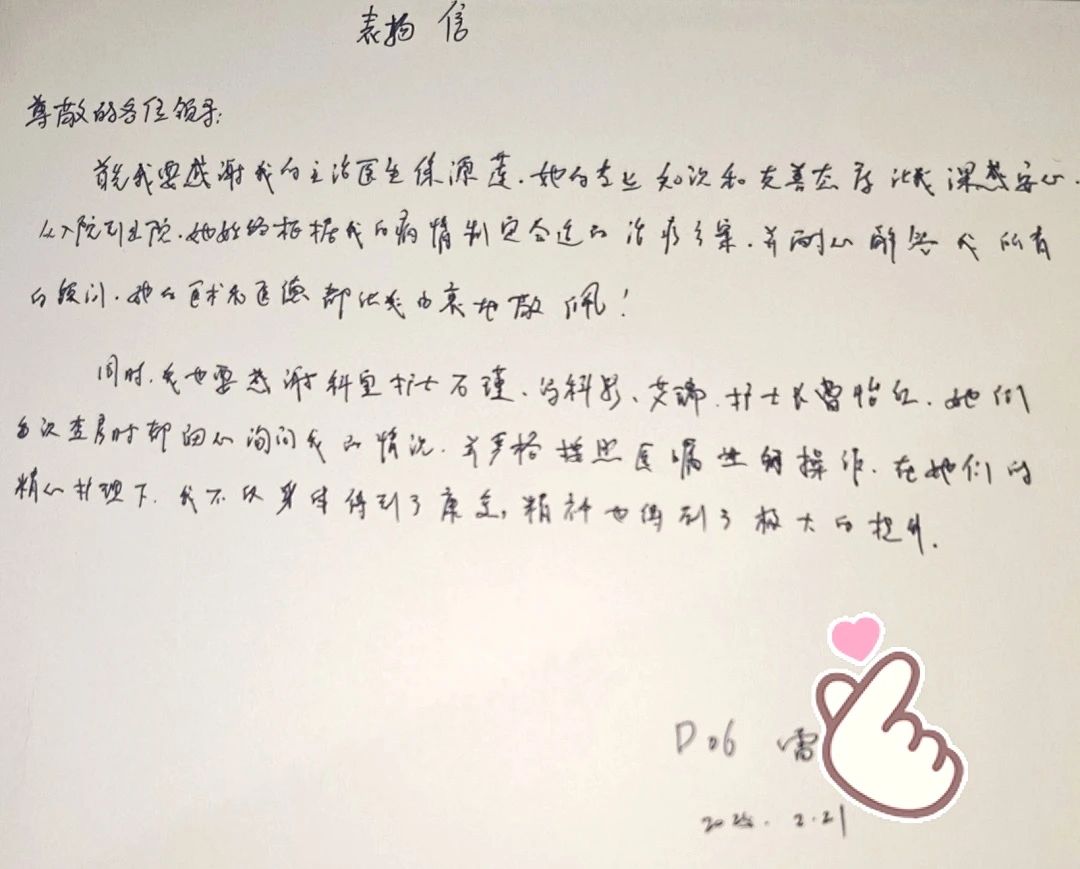 表扬信
尊敬的各位领导:
首先我要感谢我的主治医生源莲.她的专业知识和友善态度让我深感安心.
从入院到出院.她始终根据我的病情制定合适的治疗方案.并耐心解答我所有
的疑问.她的医术和医德都让我由衷地敬佩!
同时.我也要感谢科室护士石瑾、科影、艾婷.护士长曾怡红.她们
每次查房时都细心询问我的情况.并严格按照医嘱进行操作.在她们的
精心护理下.我不仅身体得到了康复,精神也得到了极大的提升.
D06 雷
2.21